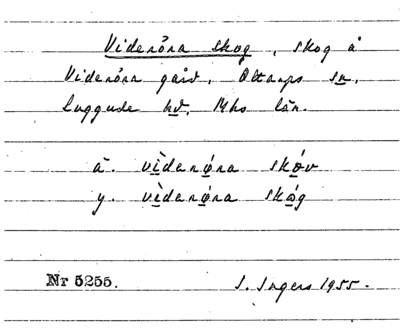 Videröra skog, skog å
Videröra gård, Öttarps sn,
Luggude hd, Mhs län.
ä. vìdərǿra skóv
y. vìdərǿra skóg
Nr 5255.
I. Ingers 1955.